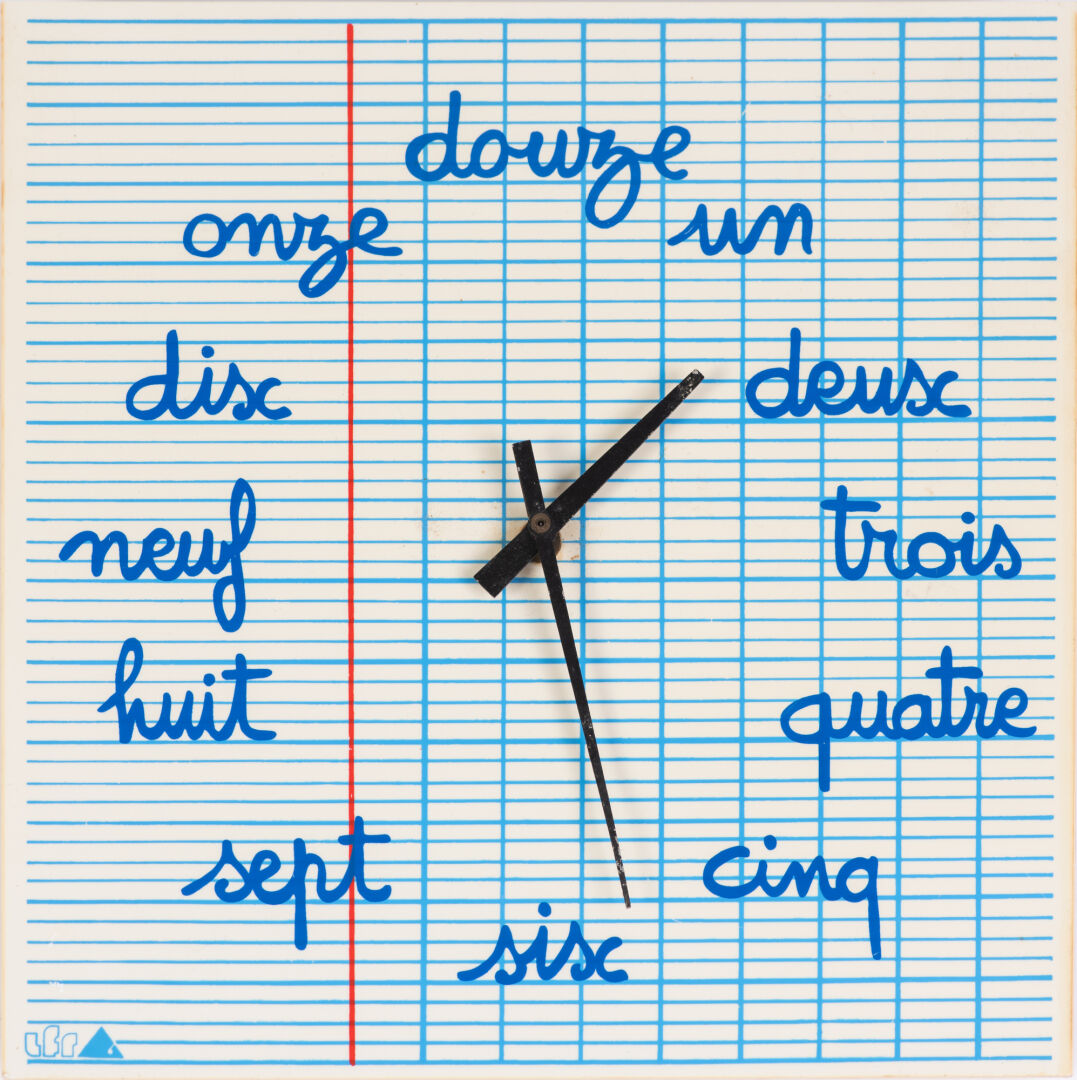 douze
un
deux
trois
quatre
cinq
six
sept
huit
neuf
dix
onze